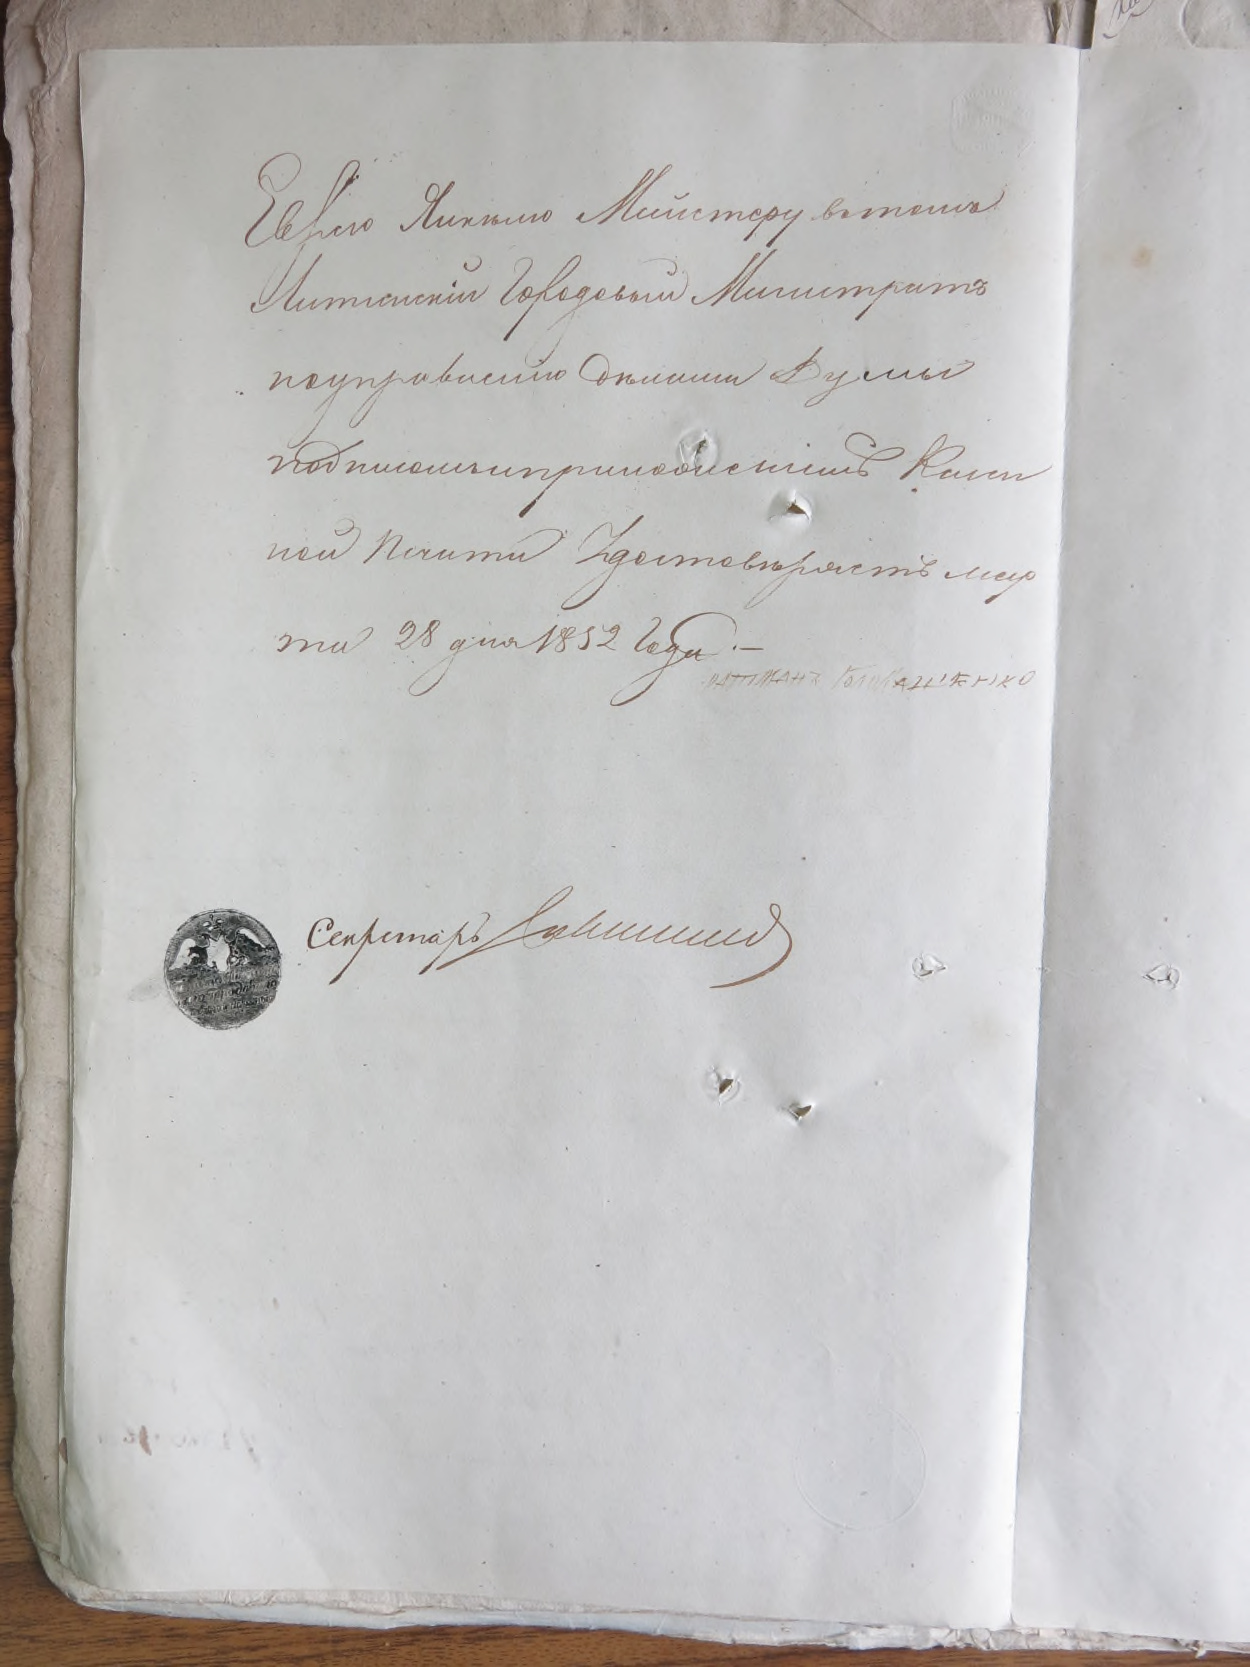 Еврею Янкелю Мейстеру втомъ
Литинскій Городовый Магистратъ
поуправленію делами Думы
подписомъ иприложеніемъ Казен
ной Печати Удостоверяетъ мар
та 28 дня 1852 Года.—
Ратманъ
Секретарь